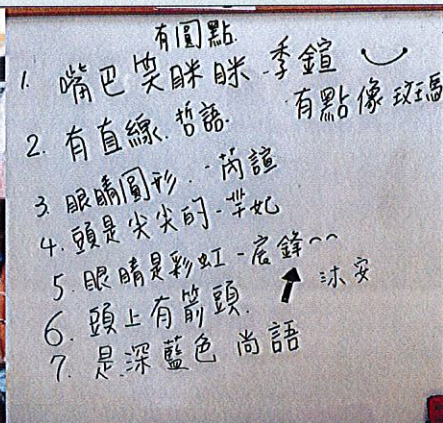 有圓點
1. 嘴巴笑眯眯-季鍹
有點像斑馬
2. 有直線. 哲語.
3. 眼睛圓形..-芮誼
4. 頭是尖尖的-芊妃
5. 眼睛是彩虹-宸鋒
6. 頭上有箭頭. 沐安
7. 是深藍色 尚語